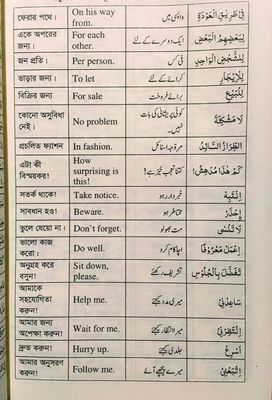 ফেরার পথে। On his way from. واپسی میں فِي طَرِيقِ الْعَوْدَةِ
একে অপরের জন্য। For each other. ایک دوسرے کے لئے لِبَعْضِهِمُ الْبَعْضِ
জন প্রতি। Per person. فی کس لِلشَّخْصِ الْوَاحِدِ
ভাড়ার জন্য। To let کرائے کے لئے لِلْإِيْجَارِ
বিক্রির জন্য For sale برائے فروخت لِلْبَيْعِ
কোনো অসুবিধা নেই। No problem کوئی پریشانی کی بات نہیں۔ لَا مُشْكِلَةَ
প্রচলিত ফ্যাশন In fashion. مروجہ اسٹائل اَلطِّرَازُ السَّائِدُ
এটা কী বিস্ময়কর! How surprising is this! کتنا تعجب خیز ہے! كَمْ هٰذَا مُدْهِشٌ!
সতর্ক থাকো। Take notice. خبردار رہو اِنْتَبِهْ
সাবধান হও। Beware. محتاط رہو اِحْذَرْ
ভুলে যেয়ো না। Don't forget. مت بھولو لَا تَنْسَى
ভালো কাজ করো। Do well. اچھا کام کرو اِعْمَلْ مَعْرُوْفًا
অনুগ্রহ করে বসুন! Sit down, please. تشریف رکھئے تَفَضَّلْ بِالْجُلُوْسِ
আমাকে সহযোগিতা করুন! Help me. میری مدد کیجئے سَاعِدْنِيْ
আমার জন্য অপেক্ষা করুন! Wait for me. میرا انتظار کیجئے اِنْتَظِرْنِيْ
দ্রুত করুন! Hurry up. جلدی کیجئے اَسْرِعْ
আমার অনুসরণ করুন! Follow me. میرے پیچھے آئیے اِتْبَعْنِيْ